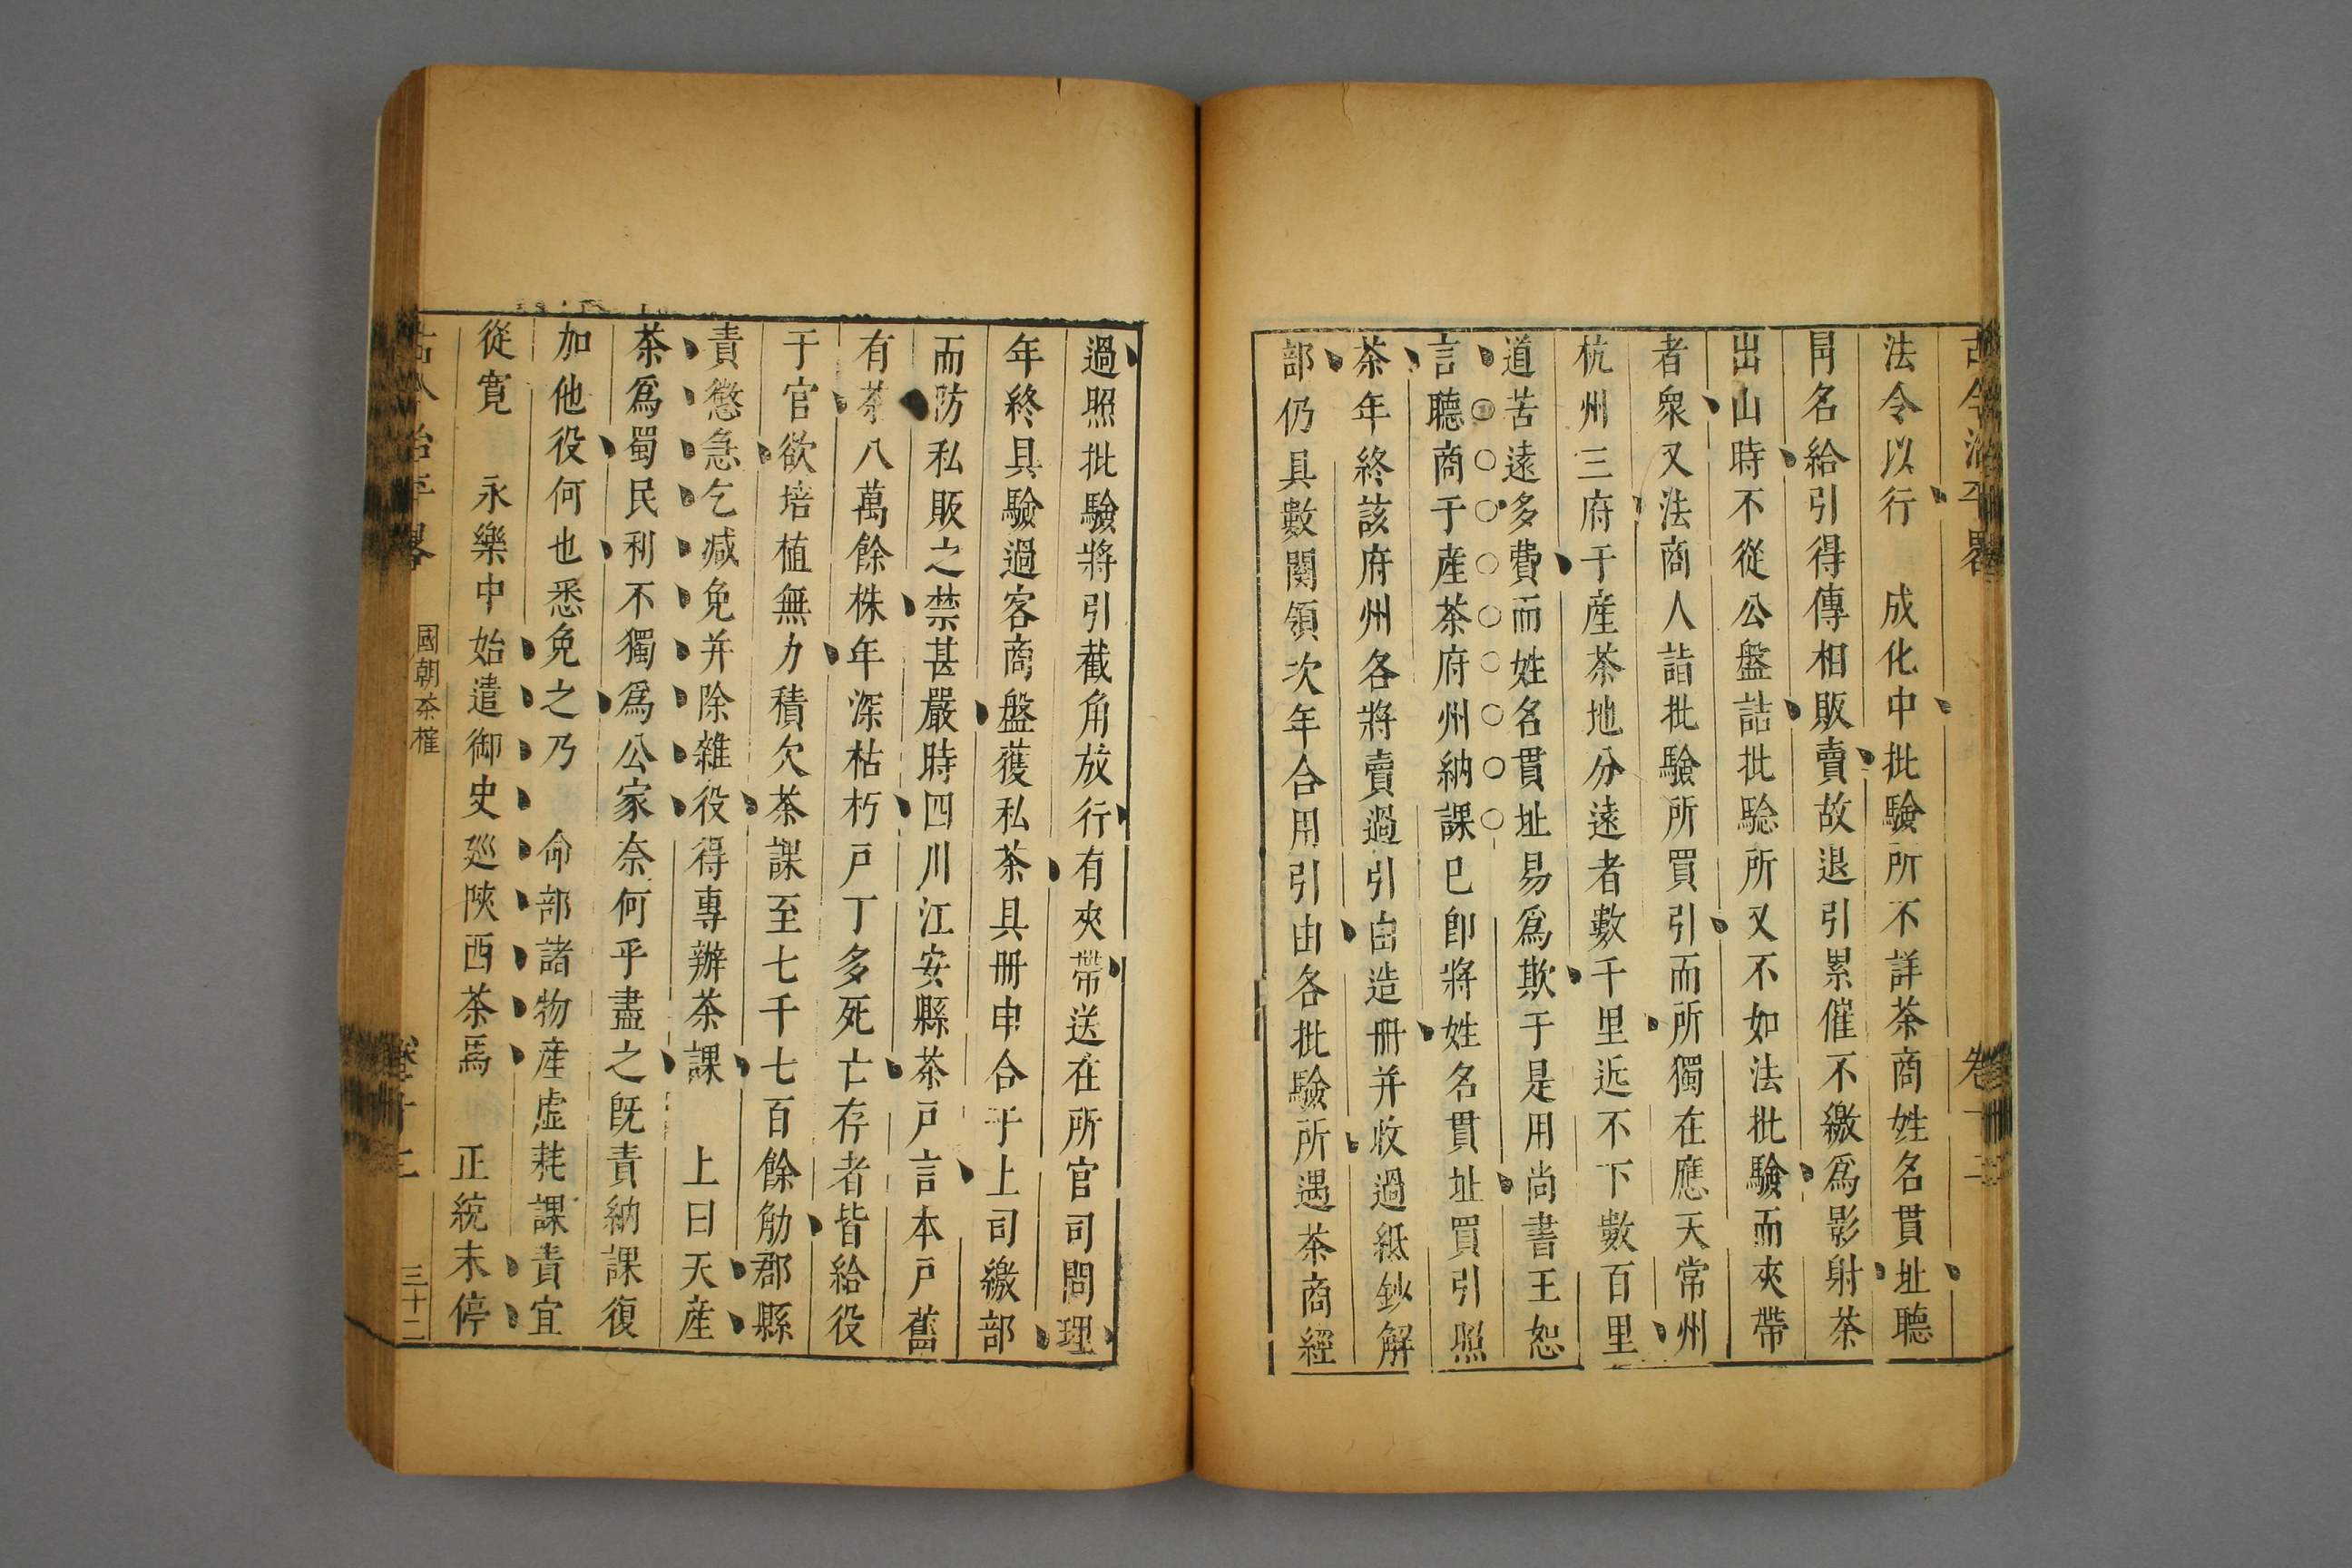 古今治平畧 卷十三
法令以行 成化中批驗所不詳茶商姓名貫址聽
冐名給引得傳相販賣故退引累催不繳爲影射茶
出山時不從公盤詰批驗所又不如法批驗而夾帶
者衆又法商人詣批驗所買引而所獨在應天常州
杭州三府于產茶地分遠者數千里近不下數百里
道苦遠多費而姓名貫址易爲欺于是用尚書王恕
言聽商于產茶府州納課巳卽將姓名貫址買引照
茶年終該府州各將賣過引由造冊并收過紙鈔解
部仍具數関領次年合用引由各批驗所遇茶商經
過照批驗將引截角放行有夾帶送在所官司問理
年終具驗過客商盤獲私茶具冊申合于上司繳部
而防私販之禁甚嚴時四川江安縣茶戸言本戸舊
有茶八萬餘株年深枯朽戸丁多死亡存者皆給役
于官欲培植無力積欠茶課至七千七百餘觔郡縣
責懲急乞减免并除雜役得專辦茶課 上曰天產
茶爲蜀民利不獨爲公家奈何乎盡之旣責納課復
加他役何也悉免之乃 命部諸物產虛耗課責宜
從寛 永樂中始遣御史廵陝西茶馬 正統末停
古今治平畧 國朝茶榷 卷十三 三十二